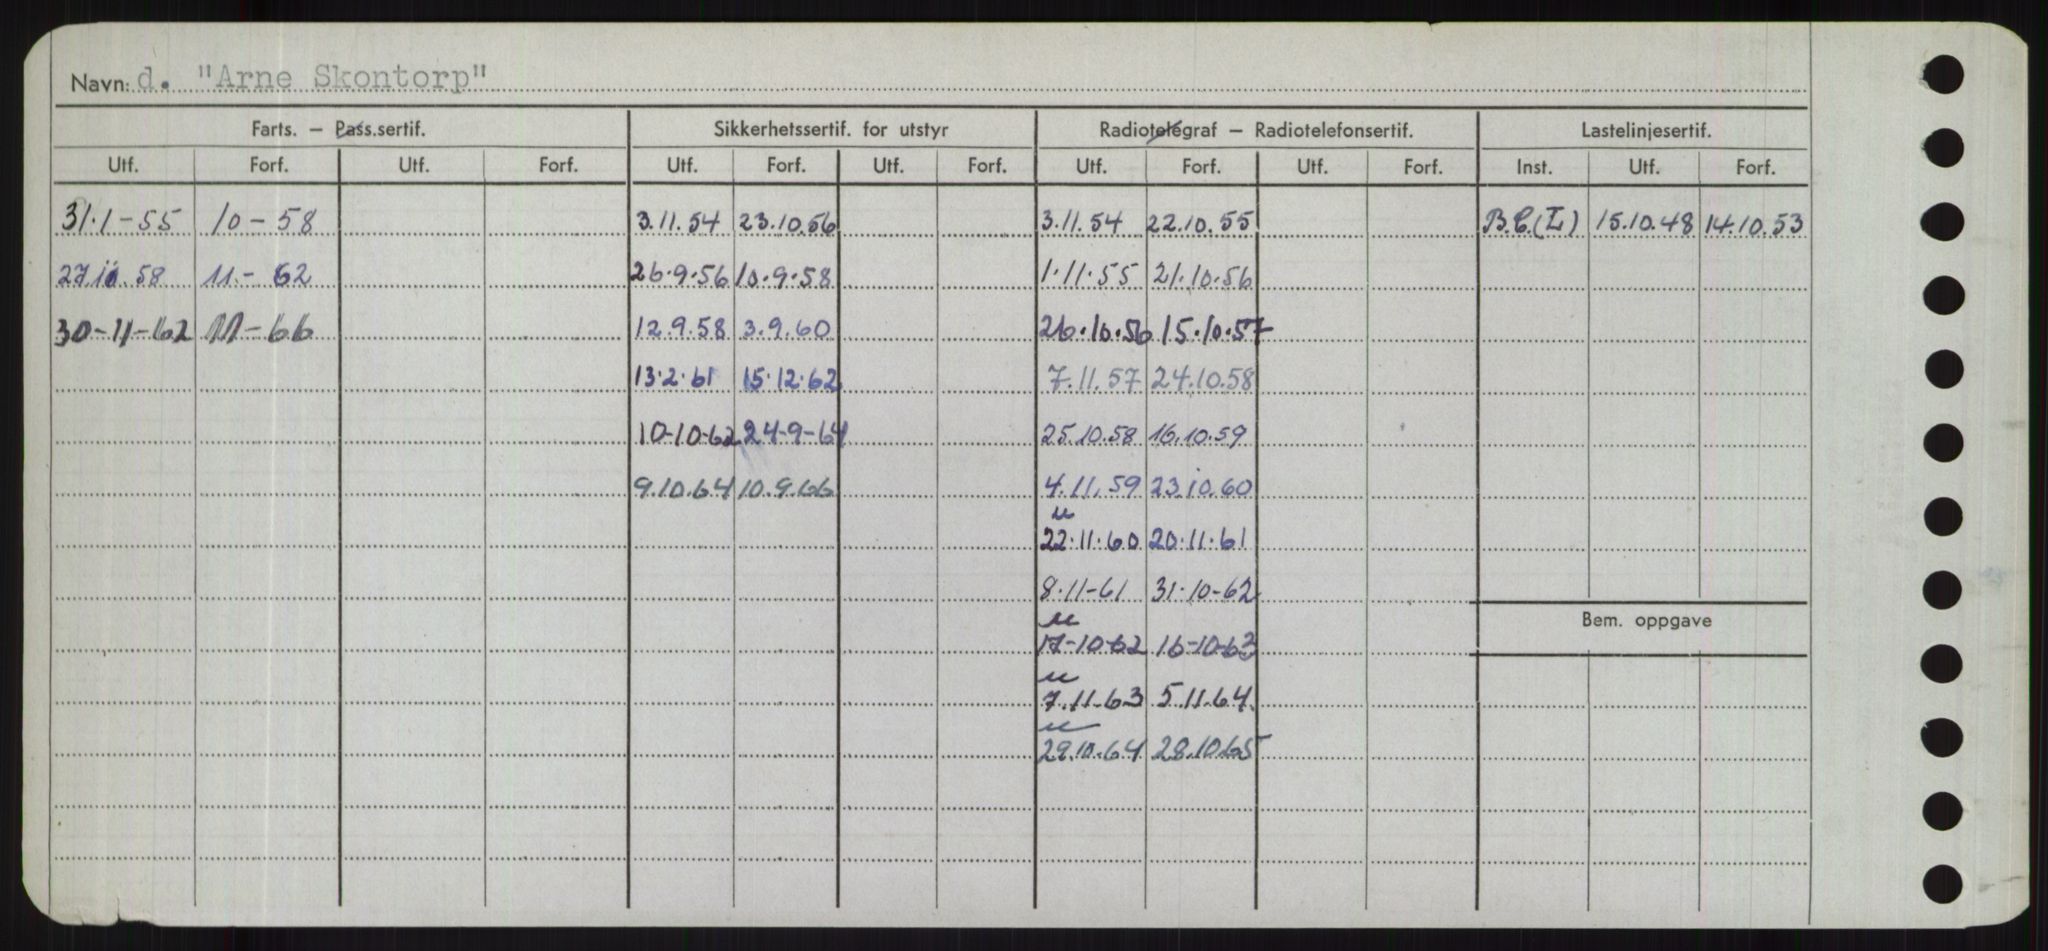 Navn: d. "Arne Skontorp"
Farts. – Pass.sertif. Sikkerhetssertif. for utstyr Radiotelegraf – Radiotelefonsertif. Lastelinjesertif.
Utf. Forf. Utf. Forf. Utf. Forf. Utf. Forf. Utf. Forf. Utf. Forf. Inst. Utf. Forf.
31.1-55 10-58 3.11.54 23.10.56 3.11.54 22.10.55 B.C.(L) 15.10.48 14.10.53
27.10.58 11.-62 26.9.56 10.9.58 1.11.55 21.10.56
30-11-62 11-66 12.9.58 3.9.60 26.10.56 15.10.57
13.2.61 15.12.62 7.11.57 24.10.58
10-10-62 24-9-64 25.10.58 16.10.59
9.10.64 10.9.66 4.11.59 23.10.60
u
22.11.60 20.11.61
8.11-61 31.10-62
Bem. oppgave
u
17-10-62 16-10-63
u
7.11.63 5.11.64
u
29.10.64 28.10.65